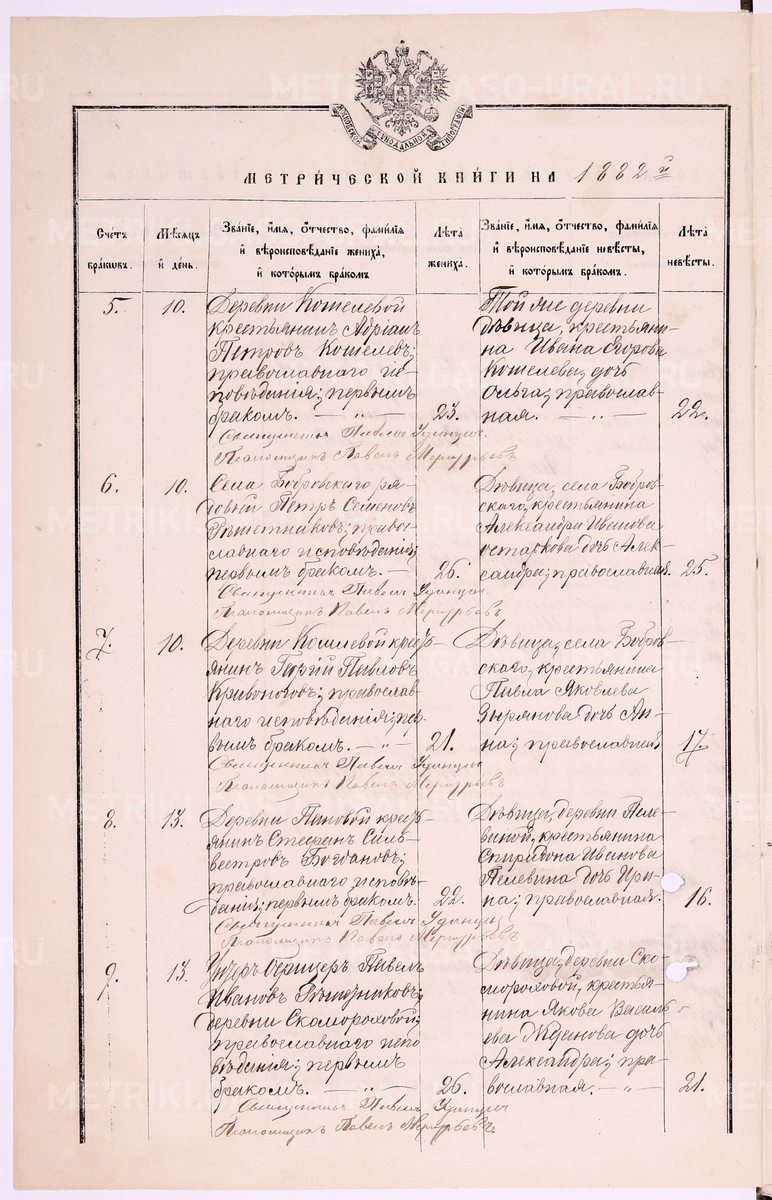 МОСКОВСКОЙ СѴНОДАЛЬНОЙ ТИПОГРАФІИ
МЕТРИ́ЧЕСКОЙ КНИ́ГИ НА 1882 й
Сче́тъ бра́кωвъ.
Мѣ́сяцъ и҆ де́нь.
Зва́нїе, и҆́мѧ, ѻ҆́тчество, фами́лїѧ и҆ вѣроисповѣ́данїе жениха̀, и҆ кото́рымъ бра́комъ
Лѣ́та жениха̀.
Зва́нїе, и҆́мѧ, ѻ҆́тчество, фами́лїѧ и҆ вѣроисповѣ́данїе невѣ́сты, и҆ кото́рымъ бра́комъ.
Лѣ́та невѣ́сты.
5.
10.
Деревни Кошелевой
крестьянинъ Адріанъ
Петровъ Кошелевъ;
православнаго ис-
повѣданія; первымъ
бракомъ. — „ —
23.
Той же деревни
дѣвица, крестьяни-
на Ивана Егорова
Кошелева, дочь
Ольга; православ-
ная. — „ —
22.
Священникъ Павелъ Удинцевъ.
Псаломщикъ Павелъ Меркурьевъ
6.
10.
Села Бобровскаго ря-
довый Петръ Семеновъ
Рѣшетниковъ; право-
славнаго исповѣданія;
первымъ бракомъ. —
26.
Дѣвица, села Бобров-
скаго, крестьянина
Александра Иванова
Остаркова дочь Алек-
сандра; православная.
25.
Священникъ Павелъ Удинцевъ
Псаломщикъ Павелъ Меркурьевъ
7.
10.
Деревни Кошелевой крестъ-
янинъ Георгій Павловъ
Кривоноговъ; православ-
наго исповѣданія; пер-
вымъ бракомъ. — „ —
21.
Дѣвица, села Бобров-
скаго, крестьянина
Павла Яковлева
Зырянова дочь Ан-
на; православная.
17.
Священникъ Павелъ Удинцевъ
Псаломщикъ Павелъ Меркурьевъ
8.
13.
Деревни Пановой крестъ-
янинъ Стефанъ Силь-
вестровъ Богдановъ;
православнаго исповѣ-
данія; первымъ бракомъ.
22.
Дѣвица, деревни Пеле-
виной, крестьянина
Спиридона Иванова
Пелевина дочь Ири-
на; православная.
16.
Священникъ Павелъ Удинцевъ
Псаломщикъ Павелъ Меркурьевъ
9.
13.
Унтеръ Офицеръ Павелъ
Ивановъ Рѣшетниковъ;
деревни Скомороховой;
православнаго испо-
вѣданія; первымъ
бракомъ. — „ —
26.
Дѣвица, деревни Ско-
мороховой, крестья-
нина Якова Василь-
ева Жданова дочь
Александра; пра-
вославная. — „ —
21.
Священникъ Павелъ Удинцевъ
Псаломщикъ Павелъ Меркурьевъ